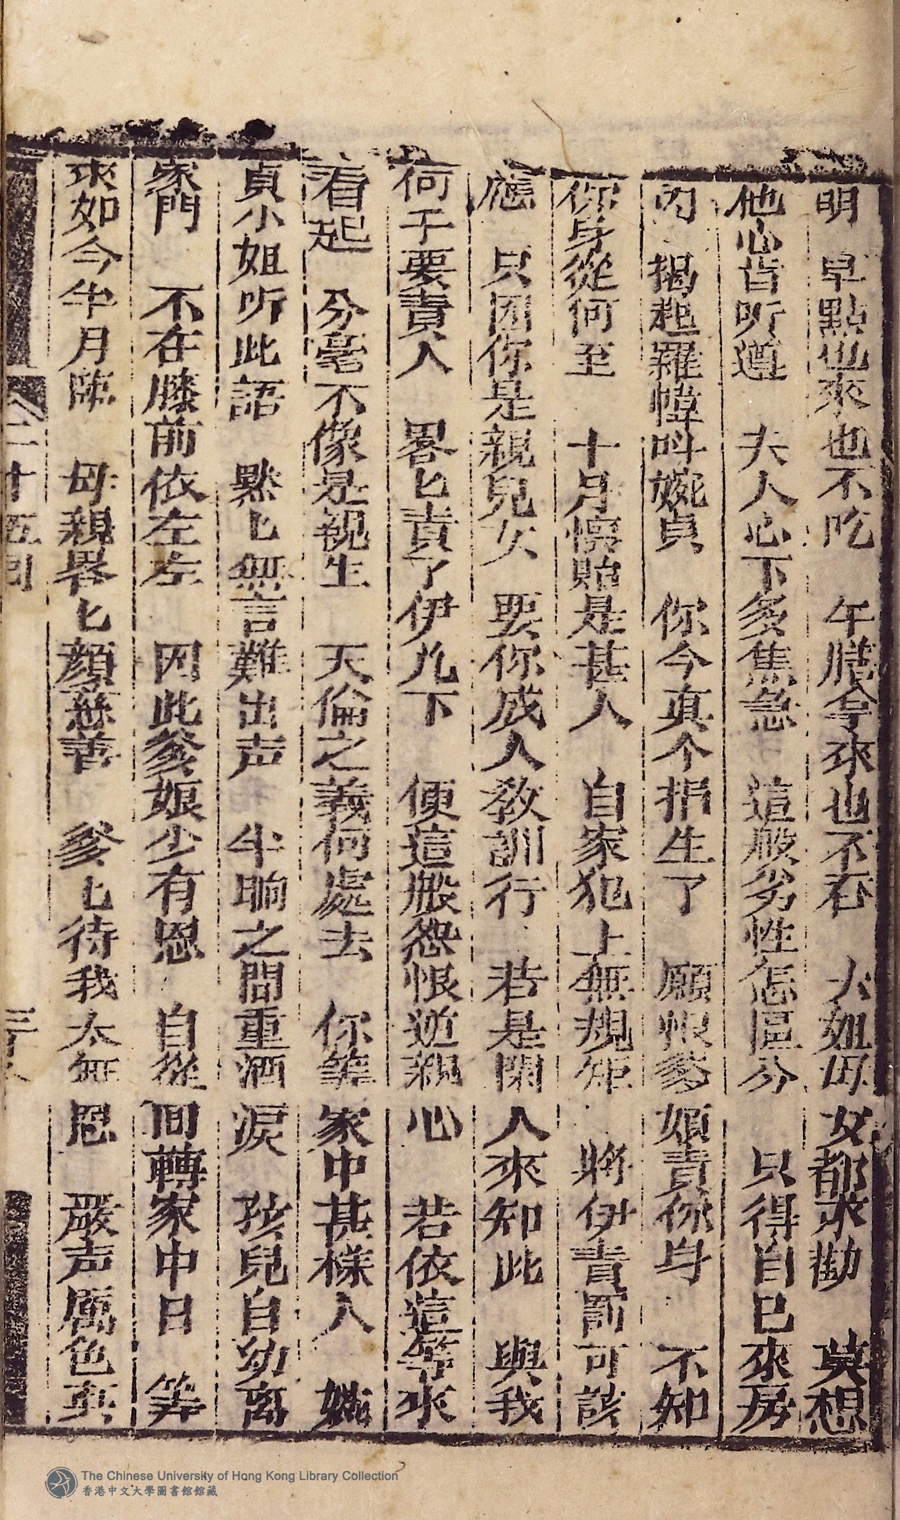 明　早點也來也不吃　午膳拿來也不吞　大姐毋女都求勸　莫想
他心肯听遵　夫人心下多焦急　這般劣性怎區分　只得自己來房
內　揭起羅幃呌婉貞　你今真个捐生了　願恨爹娘責你身　不知
你身從何至　十月懷胎是甚人　自家犯上無規矩　將伊責罰可該
應　只因你是親兒女　要你成人敎訓行　若是閑人來知此　與我
何干要責人　畧匕責了伊九下　便這般怨恨逆親心　若依這等來
看起　分毫不像是親生　天倫之義何處去　你等家中甚樣人　婉
貞小姐听此語　點匕無言難出声　半晌之間重洒淚　孩兒自幼离
家門　不在膝前依左左　因此爹娘少有恩　自從回轉家中日　等
來如今半月臨　母親畧匕顏慈善　爹匕待我太無恩　嚴声厲色真
二十五回
三十八
The Chinese University of Hong Kong Library Collection
香港中文大學圖書館館藏